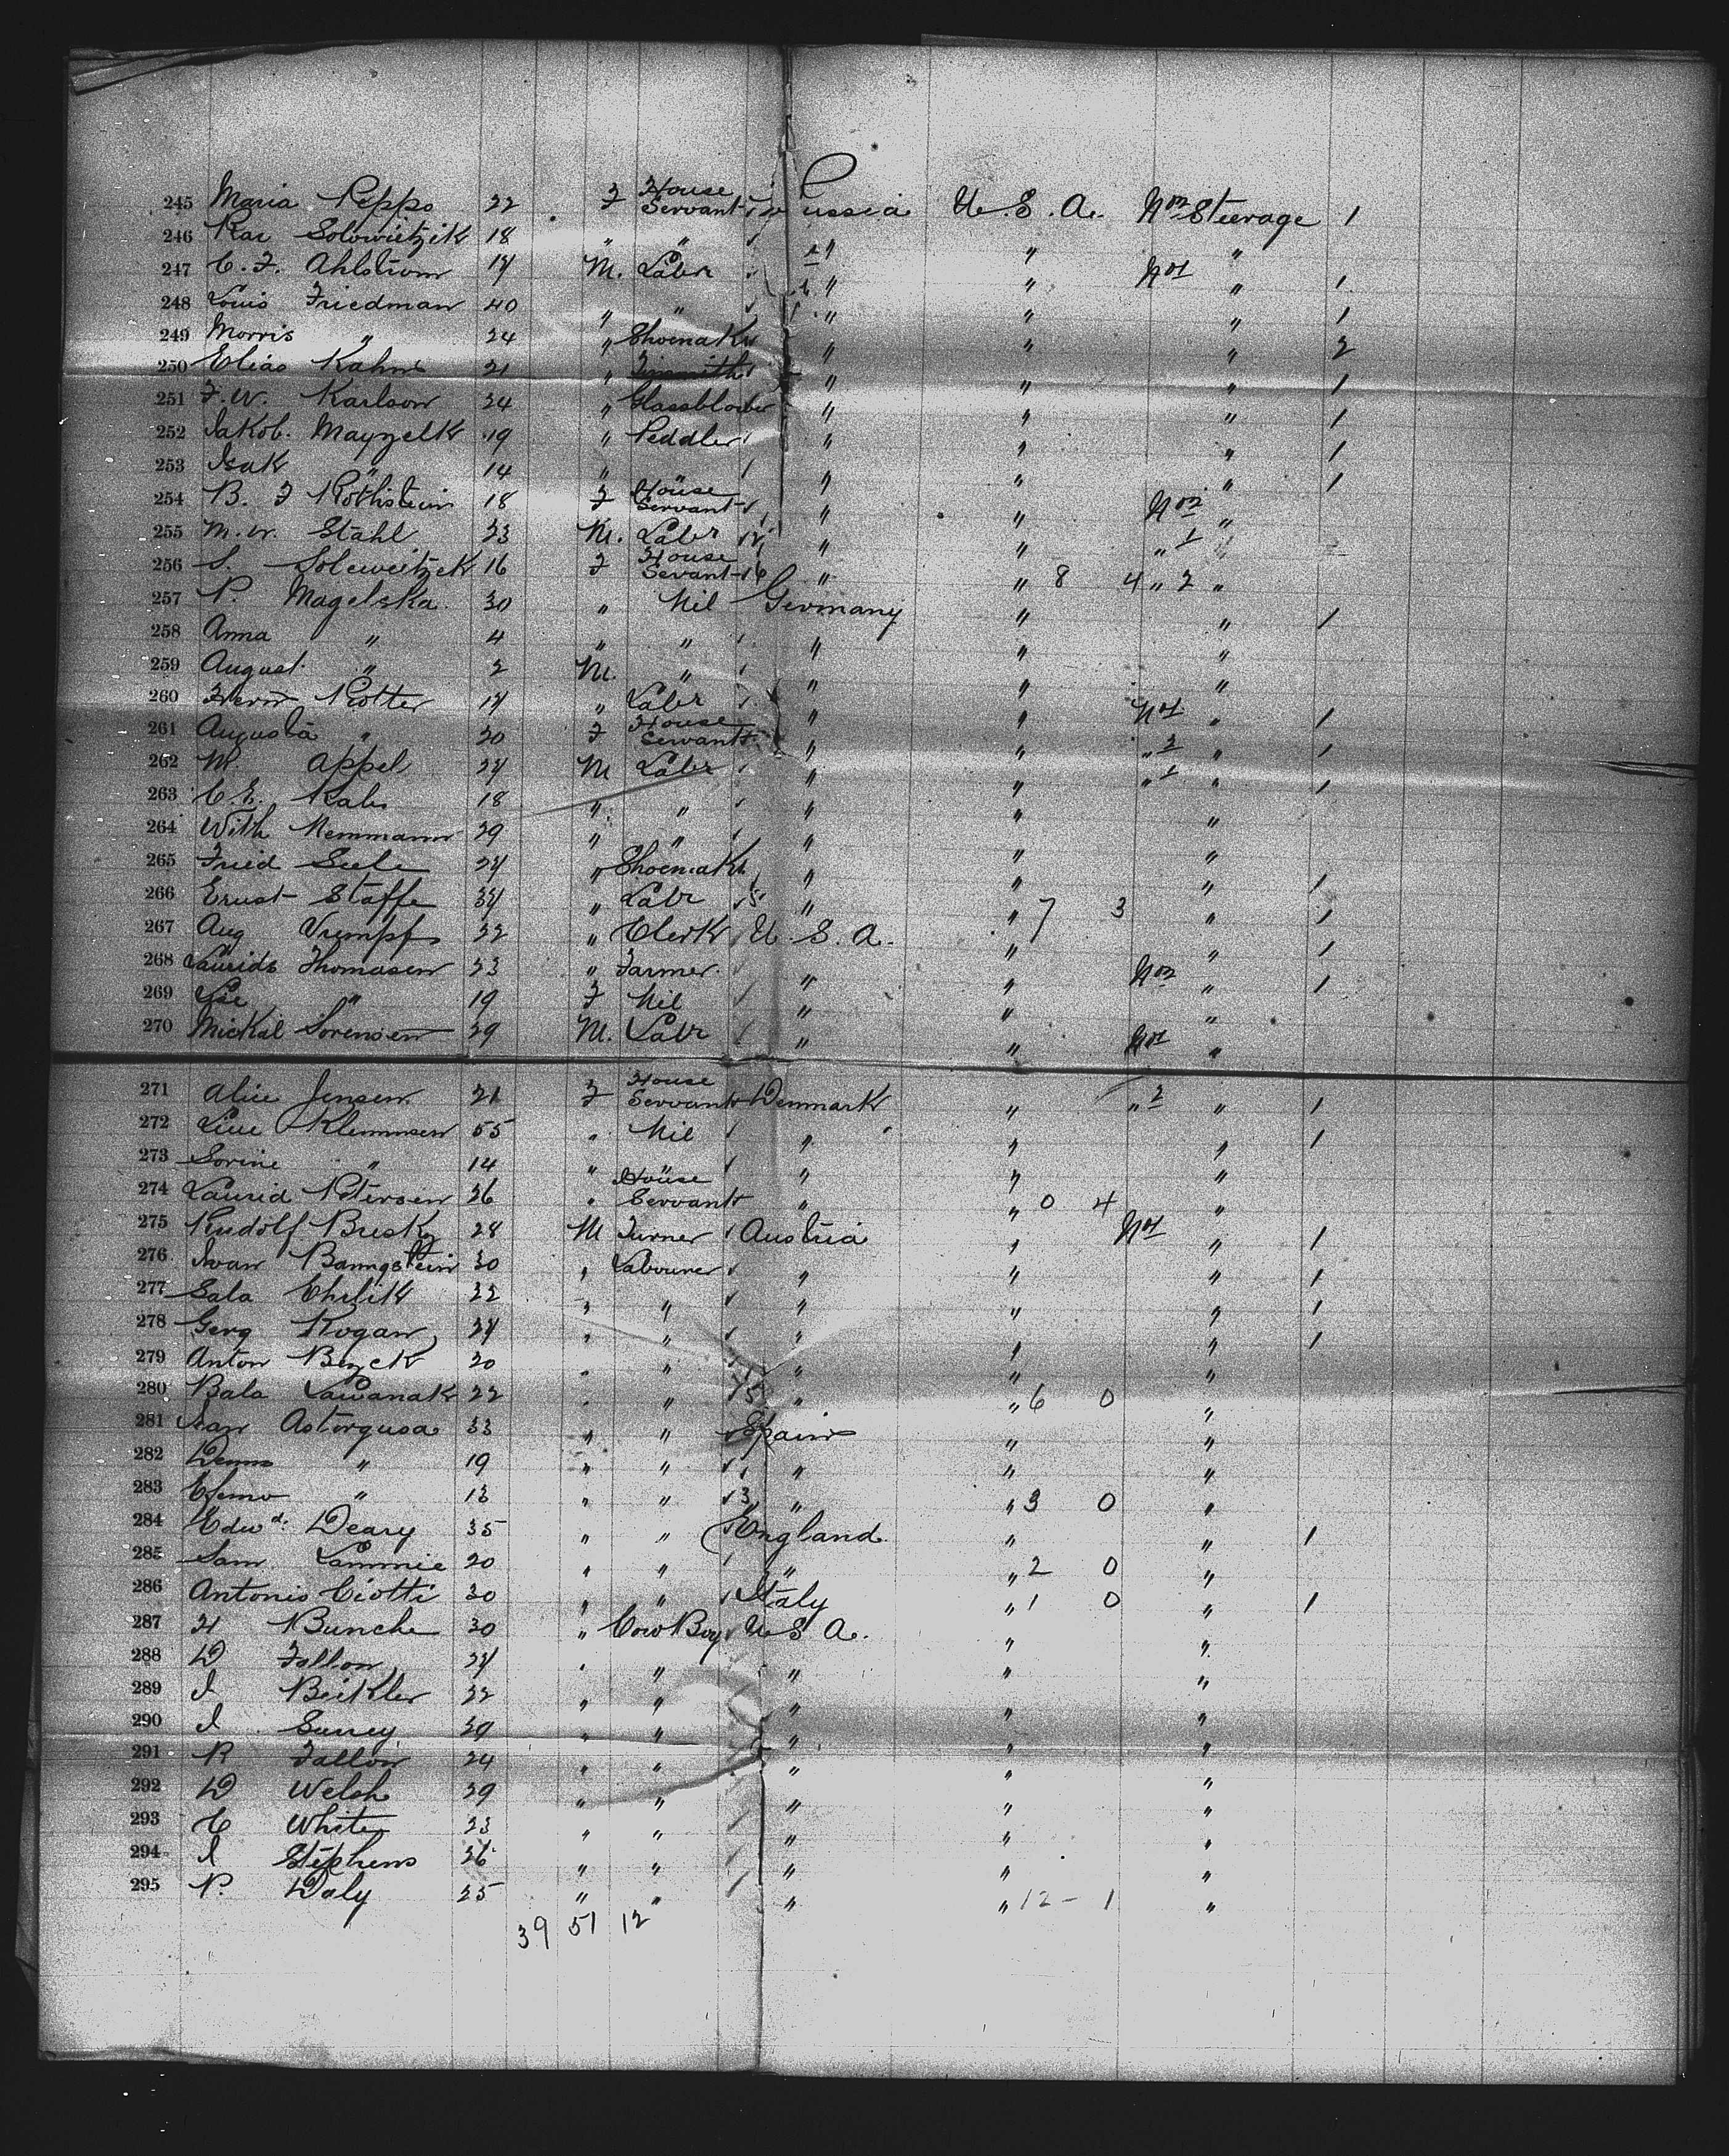 245 Maria Peppo 22 F House Servant Russia U.S.A. No 2 Steerage 1
246 Rae Solowietzik 18 " " " " "
247 C. F. Ahlstrom 17 M. Labr " " No 1 " 1
248 Louis Friedman 40 " " " " " 1
249 Morris " 24 " Shoemakr " " " 2
250 Elias Kahn 21 " Tinsmith " " " 1
251 F. W. Karlson 24 " Glassblower " " " 1
252 Jakob. Mayzelk 19 " Peddler " " " 1
253 Isak " 14 " " " " 1
254 B. F Rothstein 18 F House Servant " " No 2 "
255 M. W. Stahl 23 M. Labr " " " 1 "
256 S. Soleweitzek 16 F House Servant " " 8 4 " 2 "
257 P. Magelska 30 " Nil Germany " " 1
258 Anna " 4 " " " " "
259 August " 2 M. " " " "
260 Rotter 17 " Labr " " No 1 " 1
261 Augusta " 20 F House Servant " " " 2 " 1
262 M. Appel 27 M Labr " " " 1 " 1
263 C. E. 18 " " " " "
264 With Nemmann 29 " " " " "
265 Fried Seele 27 " Shoemakr " " " 1
266 Ernst Staffe 37 " Labr " " 7 3 " 1
267 Aug Vrempf 32 " Clerk U.S.A. " " 1
268 Laurids Thomasen 23 " Farmer " " No 2 " 1
269 " 19 F Nil " " "
270 Mickal Sorensen 29 M. Labr " " No 1 "
271 Alice Jensen 21 F House Servant Denmark " " 2 " 1
272 Line Klemmsen 55 " Nil " " " 1
273 Sorine " 14 " " " "
274 Laurid Petersen 26 " House Servant " " 0 4 "
275 Rudolf Bresky 28 M Turner Austria " No 1 " 1
276 Iwan Baumgstein 30 " Labourer " " " 1
277 Sala Ehrlik 22 " " " " " 1
278 Gerg Kogan 27 " " " " " 1
279 Anton Benzck 20 " " " " "
280 Bala Lawanak 22 " " " " 6 0 "
281 Astorgusa 33 " " Spain " "
282 " 19 " " " " "
283 " 13 " " " " 3 0 "
284 Edwd. Deary 35 " " England " " 1
285 Sam Lammie 20 " " " " 2 0 "
286 Antonio Ciotti 30 " " Italy " 1 0 " 1
287 H Bunche 30 " Cow Boy U S A. " "
288 D Fallon 27 " " " " "
289 J Beikler 22 " " " " "
290 J Surrey 29 " " " " "
291 R Fallon 24 " " " " "
292 D Welsh 29 " " " " "
293 C White 23 " " " " "
294 J Stephens 26 " " " " "
295 P. Daly 25 " " " " 12 - 1 "
39 51 12